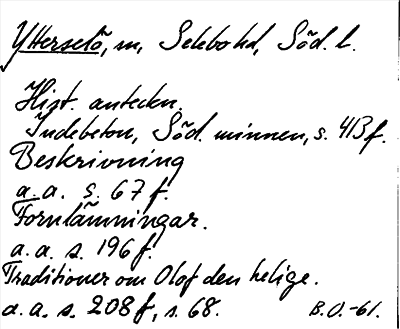 Ytterselö, sn, Selebo hd, Söd. l.
Hist. anteckn.
Indebetou, Söd. minnen, s. 413 f.
Beskrivning
a. a. s. 67 f.
Fornlämningar.
a. a. s. 196 f.
Traditioner om Olof den helige.
a. a. s. 208 f, s. 68. B.O.-61.